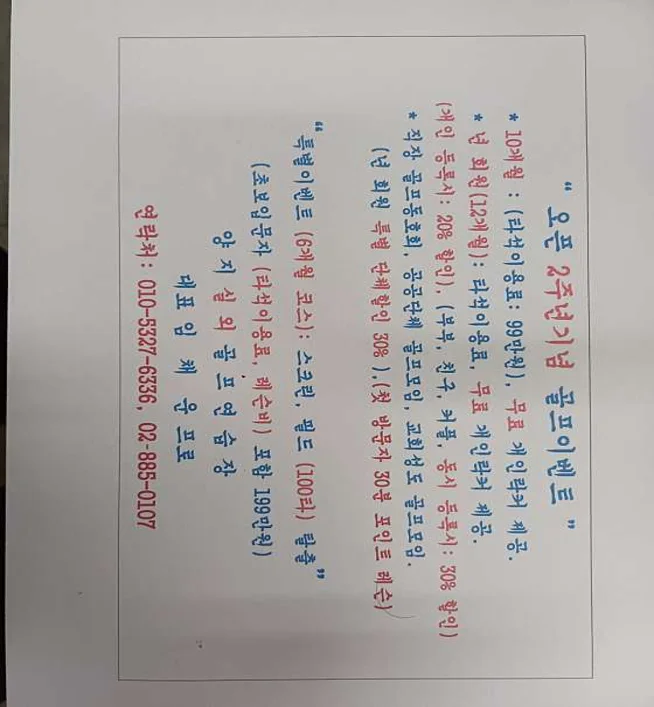 “ 오픈 2주년기념 골프이벤트 ”
* 10개월 : (타석이용료: 99만원), 무료 개인락커 제공.
* 년 회원(12개월): 타석이용료, 무료 개인락커 제공.
(개인 등록시: 20% 할인), (부부, 친구, 커플, 동시 등록시: 30% 할인)
* 직장 골프동호회, 공공단체 골프모임, 교회성도 골프모임.
(년 회원 특별 단체할인 30% ),(첫 방문자 30분 포인트 레슨)
“ 특별이벤트 (6개월 코스): 스크린, 필드 (100타.) 탈출 ”
(초보입문자 (타석이용료, 레슨비) 포함 199만원)
양지 실외 골프연습장
대표 임채윤프로
연락처: 010-5327-6336, 02-885-0107